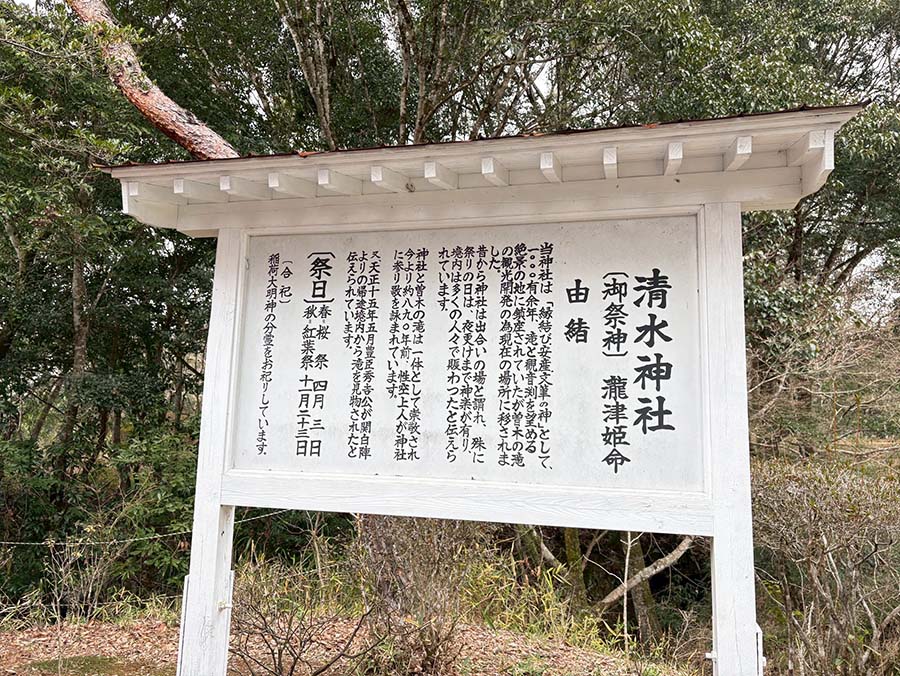 清水神社
〔御祭神〕 瀧津姫命
由結
当神社は「縁結び安産交單の神」として、
一〇〇〇有余年、滝と観音渕を望める
絶峯の地に鎮座されていたが曽木の滝
の観光開発の為現在の場所に移されま
した。
昔から神社は出合いの場と謂れ、殊に
祭りの日は、夜更けまで神楽が有り、
境内は多くの人々で賑わったと伝えら
れています。
神社と曽木の滝は一体として崇敬され
今より約八九〇年前、性空上人が神社
に参り歌を詠まれています。
又天正十五年五月豊臣秀吉公が関白陣
よりの帰途境内から滝を見物されたと
伝えられています。
〔祭日〕 春・桜 祭 四月 三日
秋・紅葉祭 十一月二十三日
〔合祀〕
稲荷大明神の分霊をお祀りしています。